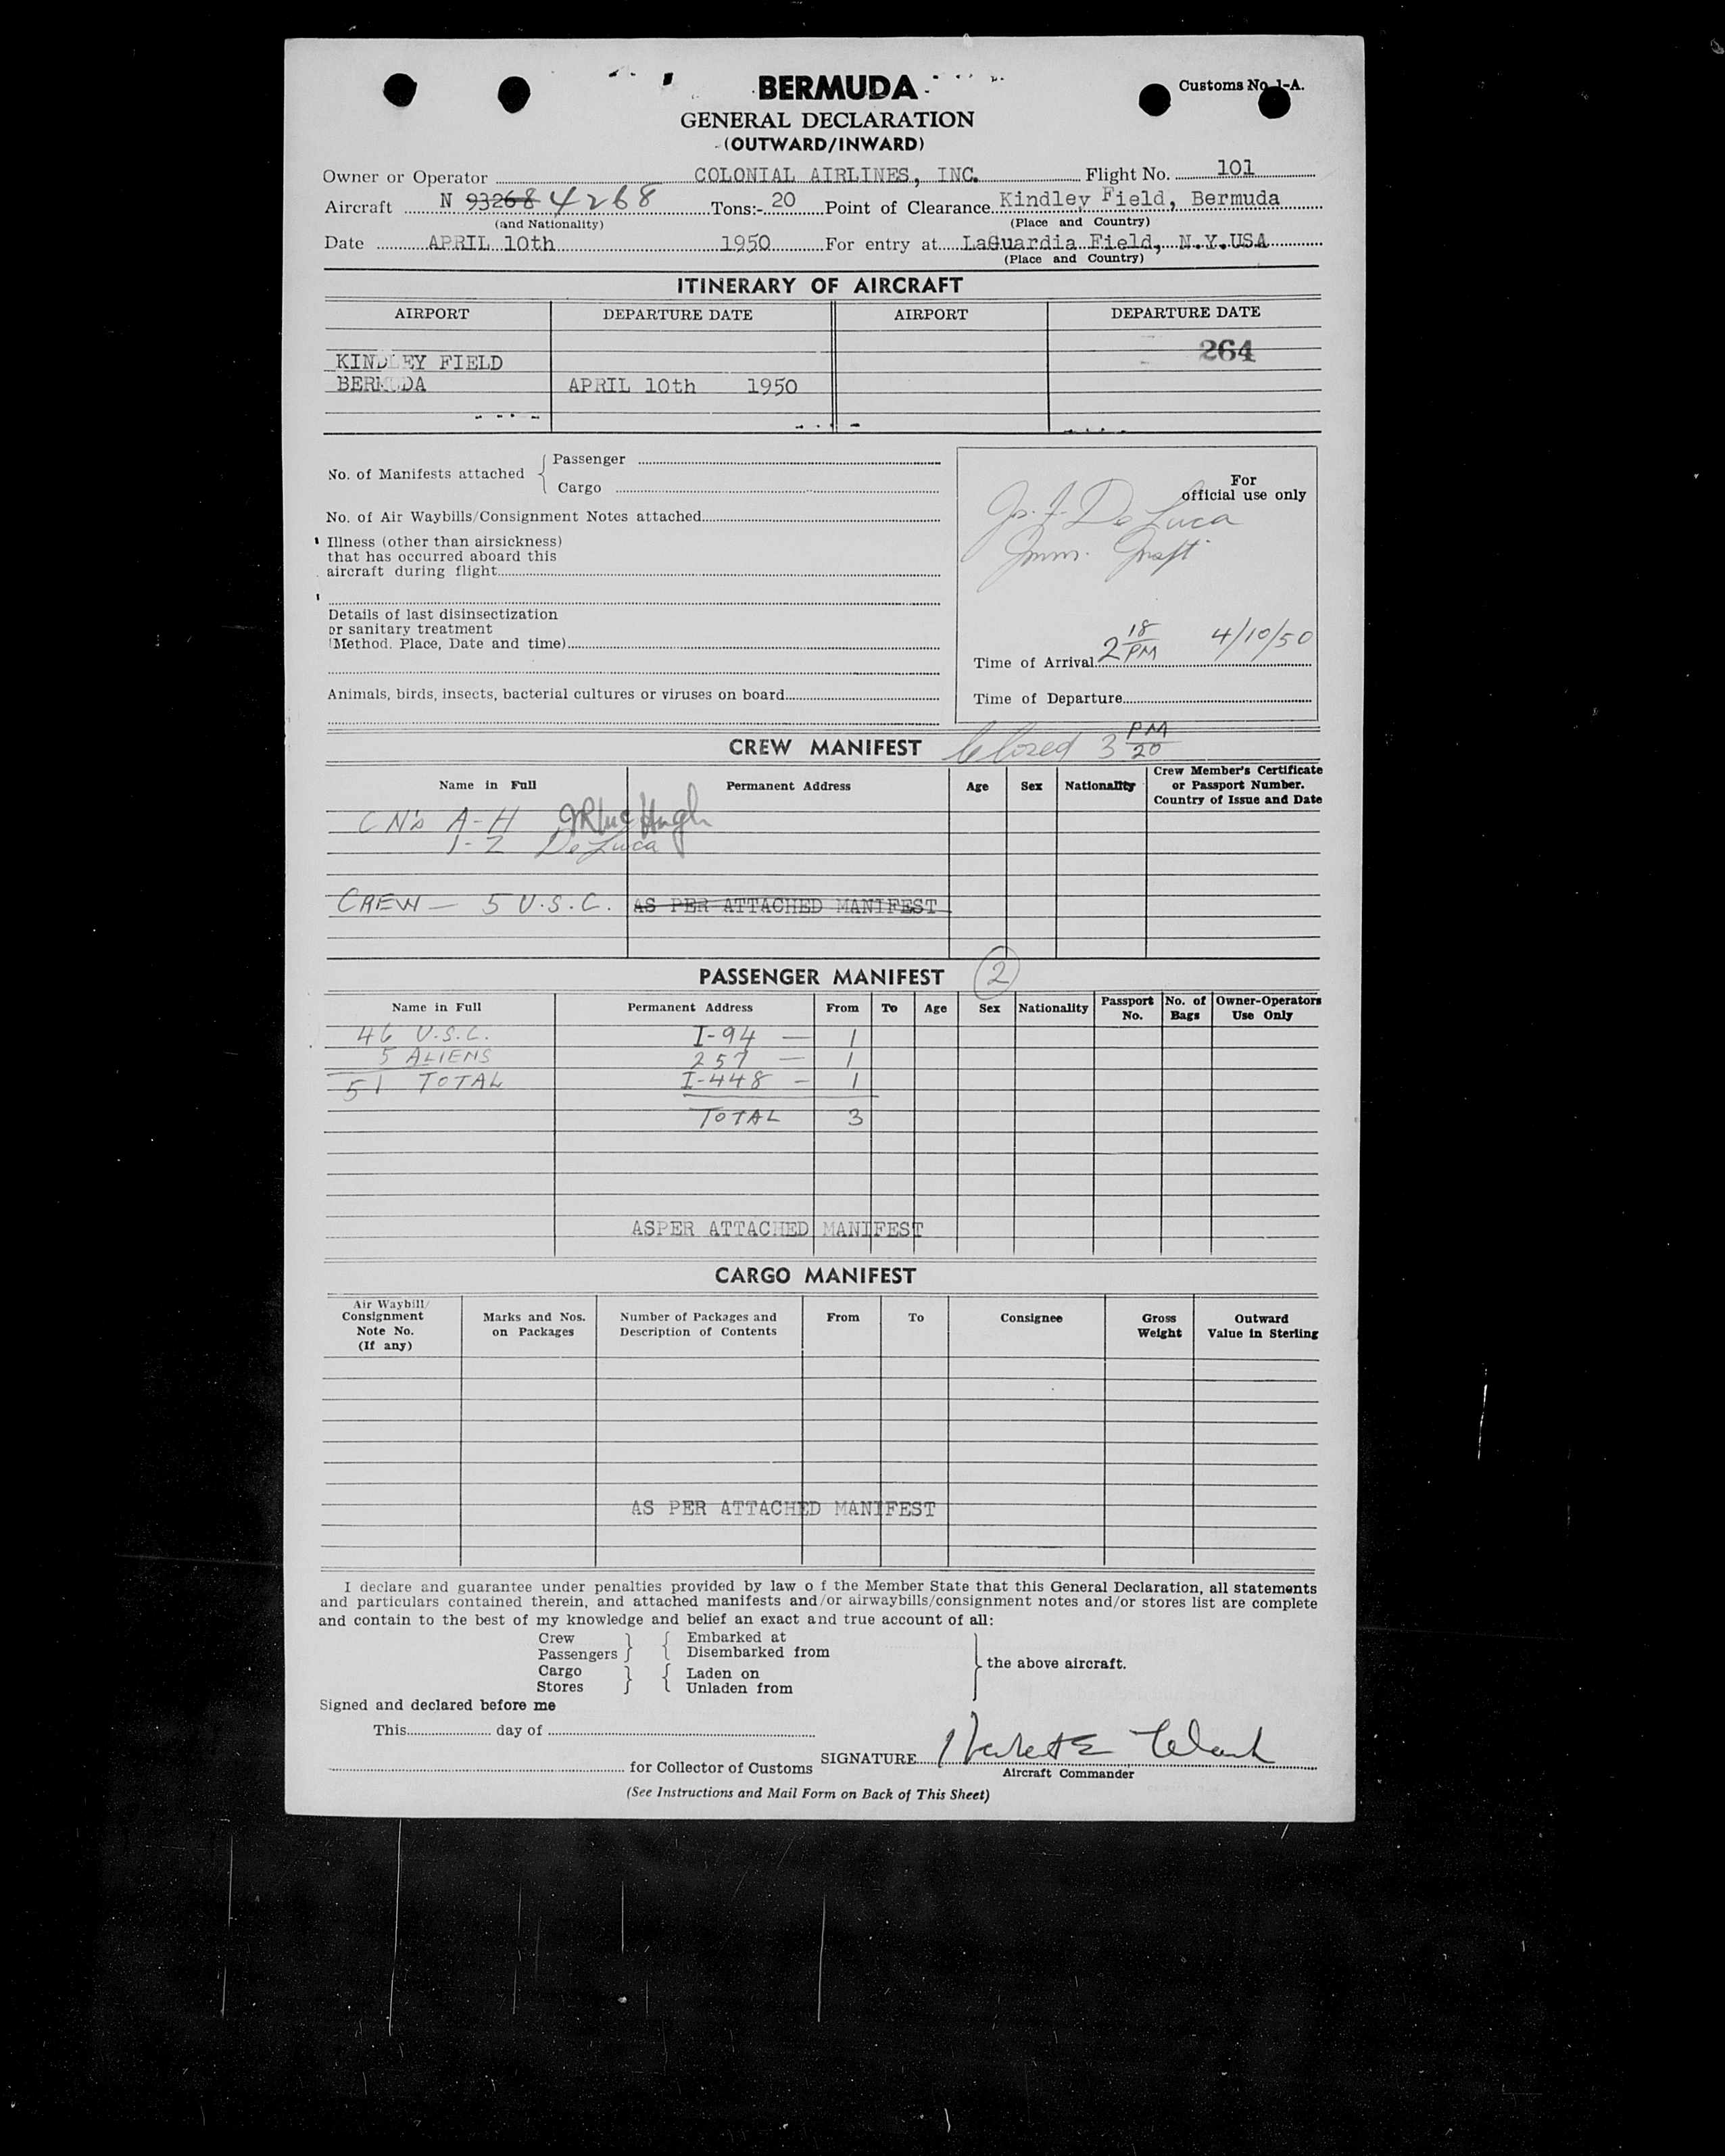 BERMUDA
Customs No. 1-A.
GENERAL DECLARATION
(OUTWARD/INWARD)
Owner or Operator COLONIAL AIRLINES, INC. Flight No. 101
Aircraft N 93268 4268 Tons:- 20 Point of Clearance Kindley Field, Bermuda
(and Nationality) (Place and Country)
Date APRIL 10th 1950 For entry at LaGuardia Field, N.Y.USA
(Place and Country)
ITINERARY OF AIRCRAFT
AIRPORT DEPARTURE DATE AIRPORT DEPARTURE DATE
264
KINDLEY FIELD
BERMUDA APRIL 10th 1950
No. of Manifests attached { Passenger
Cargo
For
official use only
Jos. F. De Luca
Imm. Inspt
No. of Air Waybills/Consignment Notes attached
Illness (other than airsickness)
that has occurred aboard this
aircraft during flight
Details of last disinsectization
or sanitary treatment
(Method. Place, Date and time)
Time of Arrival 2 18 PM 4/10/50
Animals, birds, insects, bacterial cultures or viruses on board
Time of Departure
CREW MANIFEST Closed 3 PM 20
Name in Full Permanent Address Age Sex Nationality Crew Member's Certificate
or Passport Number.
Country of Issue and Date
CN's A-H McHugh
I-Z De Luca
CREW — 5 U.S.C. AS PER ATTACHED MANIFEST
PASSENGER MANIFEST 2
Name in Full Permanent Address From To Age Sex Nationality Passport No. No. of Bags Owner-Operators Use Only
46 U.S.C. I-94 — 1
5 ALIENS 257 — 1
51 TOTAL I-448 — 1
TOTAL 3
ASPER ATTACHED MANIFEST
CARGO MANIFEST
Air Waybill/
Consignment
Note No.
(If any)
Marks and Nos.
on Packages
Number of Packages and
Description of Contents
From To Consignee
Gross
Weight
Outward
Value in Sterling
AS PER ATTACHED MANIFEST
I declare and guarantee under penalties provided by law o f the Member State that this General Declaration, all statements
and particulars contained therein, and attached manifests and/or airwaybills/consignment notes and/or stores list are complete
and contain to the best of my knowledge and belief an exact and true account of all:
Crew } { Embarked at
Passengers } { Disembarked from
} the above aircraft.
Cargo } { Laden on
Stores } { Unladen from
Signed and declared before me
This day of
for Collector of Customs SIGNATURE
Aircraft Commander
(See Instructions and Mail Form on Back of This Sheet)